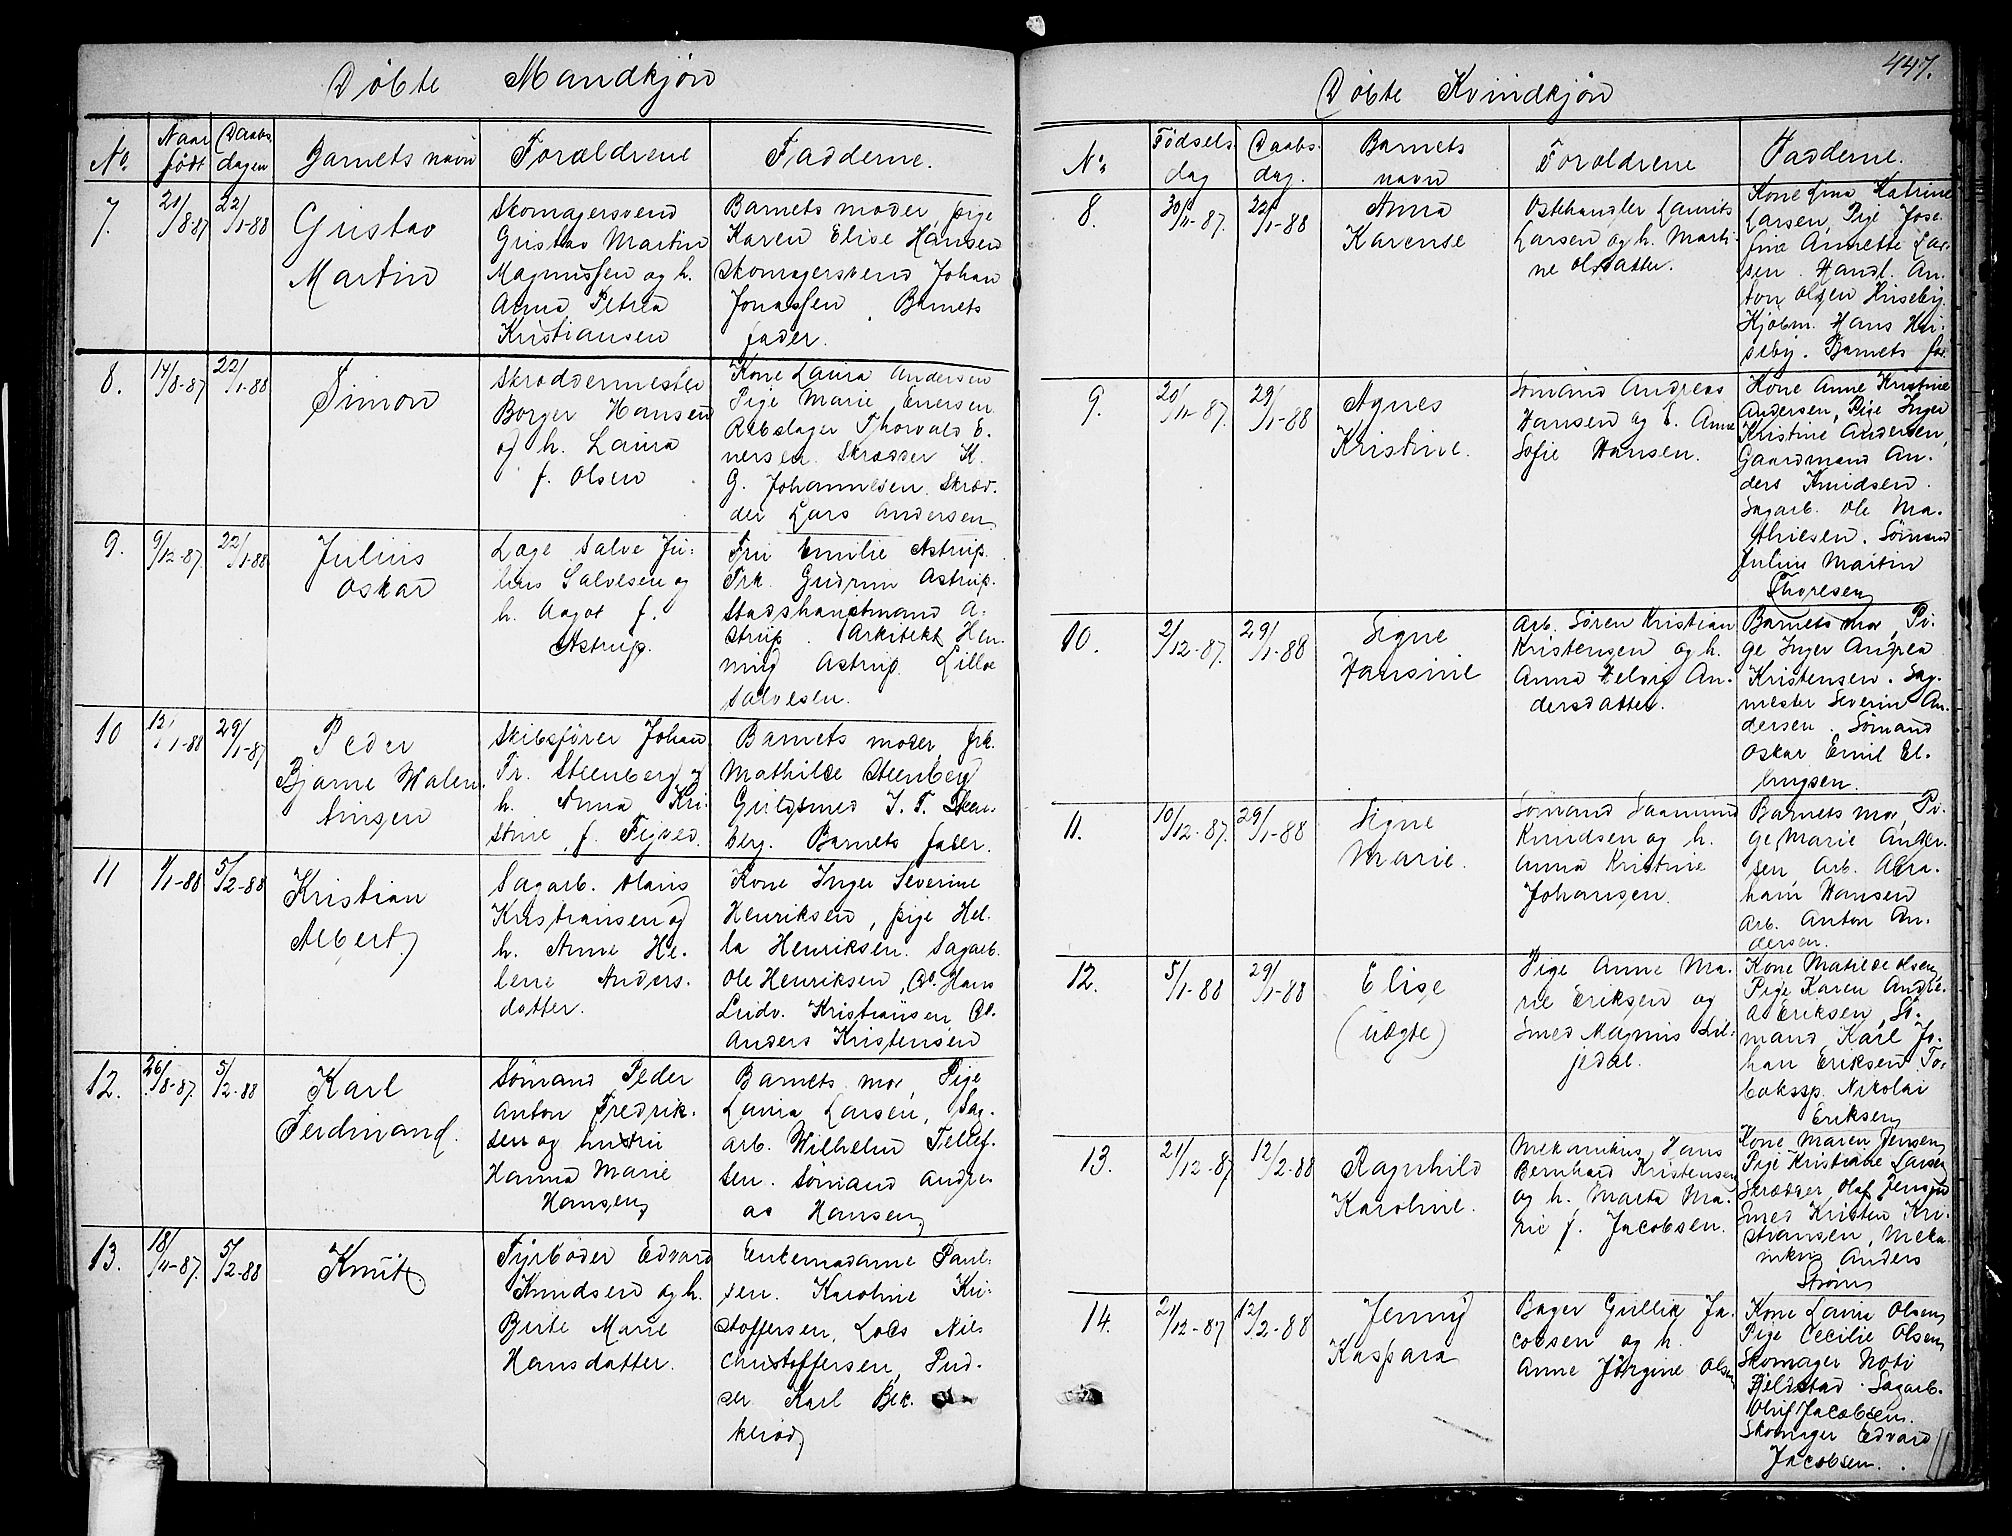 Døbte Mandkjøn
No. Naar født Daabsdagen Barnets navn Forældrene Fadderne.
7. 21/8-87 22/1-88
Gustav
Martin
Skomagersvend
Gustav Martin
Magnussen og h.
Anna Petrea
Kristiansen
Barnets moder, pige
Karen Elise Hansen
Skomagersvend Johan
Jonassen. Barnets
fader.
8. 14/8-87 22/1-88
Simon
Skræddermester
Borger Hansen
og h. Laura
f. Olsen
Kone Laura Andersen
Pige Marie Enersen
Rebslager Thorvald E-
nersen. Skrædder K.
G. Johannesen. Skræd-
der Lars Andersen
9. 9/12-87. 22/1-88
Julius
Oskar
Læge Salve Ju-
lius Salvesen og
h. Aagot f.
Astrup.
Fru Emilie Astrup.
Frk. Gudrun Astrup.
Stadshauptmand A-
strup. Arkitekt Hen-
ning Astrup. Lilloe
Salvesen.
10 12/1-88 29/1-87
Peder
Bjarne Walen-
tinsen
Skibsfører Johan
Fr. Steenberg og
h. Anna Kri-
stine f. Tigved.
Barnets moder, frk.
Mathilde Steenberg
Guldsmed J. F. Steen-
berg. Barnets fader.
11 1/1-88 5/2-88
Kristian
Albert
Sagarb. Olaus
Kristiansen og
h. Anne He-
lene Anders-
datter.
Kone Inger Severine
Henriksen, pige Hel-
la Henriksen. Sagarb.
Ole Henriksen, Do. Hans
Ludv. Kristiansen, Do.
Anders Kristensen
12. 26/8-87. 5/2-88
Karl
Ferdinand.
Sømand Peder
Anton Fredrik-
sen og hustru
Hanna Marie
Hansen
Barnets mor, Pige
Laura Larsen, Sag-
arb. Wilhelm Tellef-
sen. Sømand Andre-
as Hansen
13. 18/11-87. 5/2-88
Knut
Fyrbøder Edvard
Knudsen og h.
Berte Marie
Hansdatter.
Enkemadame Paul-
sen. Karoline Kri-
stoffersen, Lods Nils
Christoffersen, Pud-
ser Karl Bek-
kerød
447.
Døbte Kvindkjøn
No. Fødselsdag Daabsdag. Barnets navn Forældrene Fadderne.
8. 30/11-87. 22/1-88
Anna
Karense
Ostehandler Laurits
Larsen og h. Marti-
ne Olsdatter.
Kone Lina Katrine
Larsen, Pige Jose-
fine Annette Lar-
sen. Handl. An-
ton Olsen Huseby.
Kjøbm. Hans Hu-
seby. Barnets far.
9. 20/11-87. 29/1-88
Agnes
Kristine.
Sømand Andreas
Hansen og h. Anne
Sofie Hansen.
Kone Anne Kristine
Andersen, Pige Inger
Kristine Andersen,
Gaardmand An-
ders Knudsen.
Sagarb. Ole Ma-
thiesen. Sømand
Julius Martin
Thoresen
10. 2/12-87. 29/1-88
Signe
Hansine
Arb. Søren Kristian
Kristensen og h.
Anna Helvig An-
dersdatter.
Barnets mor, Pi-
ge Inger Andrea
Kristensen. Sag-
mester Severin An-
dersen. Sømand
Oskar Emil El-
lingsen.
11. 10/12-87. 29/1-88
Signe
Marie.
Sømand Saamund
Knudsen og h.
Anna Kristine
Johansen.
Barnets mor, Pi-
ge Marie Ander-
sen, Arb. Abra-
ham Hansen
Arb. Anton An-
dersen.
12. 5/1-88 29/1-88
Elise
(uægte)
Pige Anne Ma-
rie Eriksen og
Smed Magnus Lil-
jedal.
Kone Matilde Olsen,
Pige Karen Andre-
a Eriksen, Sø-
mand Karl Jo-
han Eriksen To-
baksp. Nikolai
Eriksen
13. 21/12-87 12/2-88
Ragnhild
Karoline.
Mekanikus Hans
Bernhard Kristensen
og h. Marta Ma-
rie f. Jacobsen.
Kone Maren Jensen,
Pige Kristiane Larsen
Skrædder Olaf Jensen
Smed Kristen Kri-
stiansen, Meka-
nikus Anders
Strøm
14. 21/12-87 12/2-88
Jenny
Kaspara
Bager Gullik Ja-
cobsen og h.
Anne Jørgine Olsen
Kone Laura Olsen,
Pige Cecilie Olsen,
Skomager
Fjeldstad. Sagarb.
Oluf Jacobsen.
Skomager Edvard
Jacobsen.